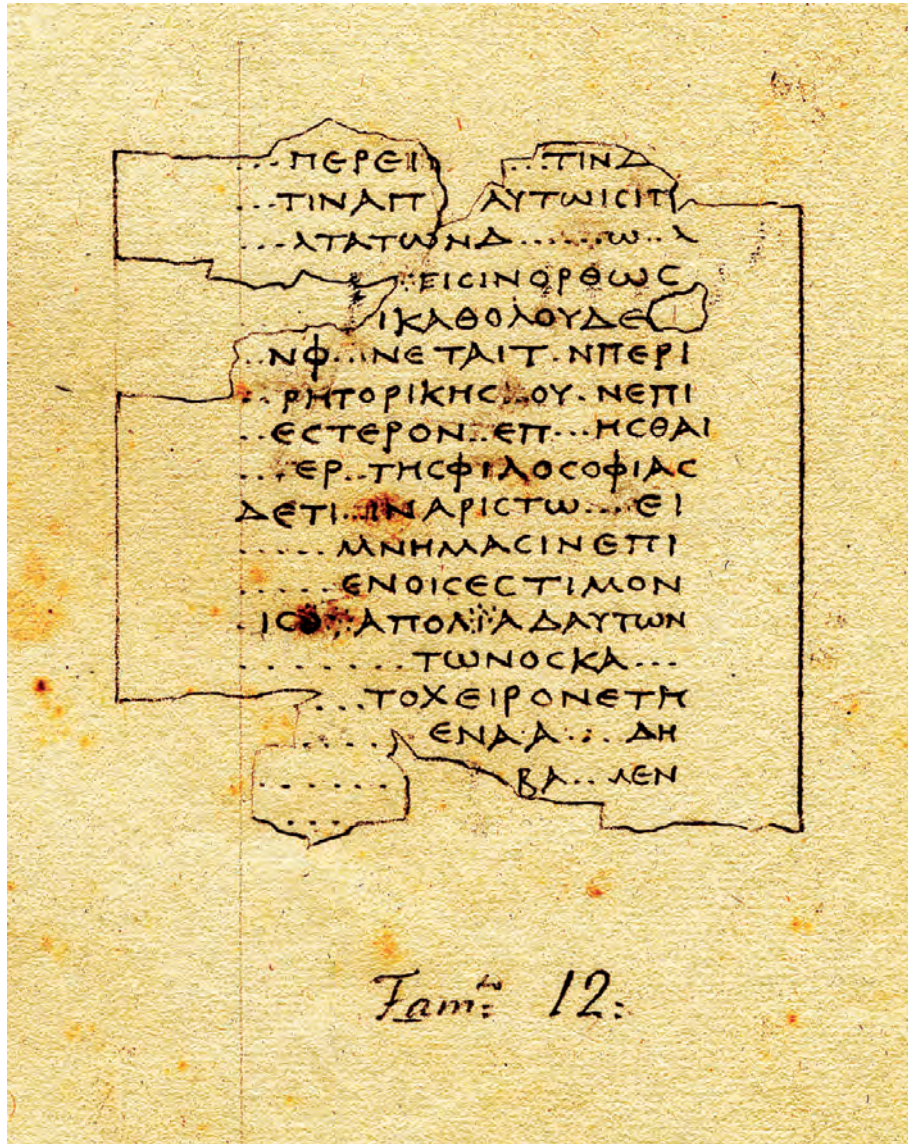 ...ΠΕΡΕΙΙ ...ΤΙΝΔ
...ΤΙΝΑΠ ΑΥΤΩΙϹΙΠ
...ΑΤΑΤΩΝΔ......Ω..Λ
..ΕΙϹΙΝΟΡΘΩϹ
ΙΚΑΘΟΛΟΥΔΕ
..ΝΦ...ΙΝΕΤΑΙΤ.ΝΠΕΡΙ
..ΡΗΤΟΡΙΚΗϹ...ΟΥ.ΝΕΠΙ
..ΕϹΤΕΡΟΝ..ΕΠ...ΗϹΘΑΙ
...ΕΡ..ΤΗϹΦΙΛΟϹΟΦΙΑϹ
ΔΕΤΙ..ΙΝΑΡΙϹΤΩ....ΕΙ
.....ΜΝΗΜΑϹΙΝΕΠΙ
.....ΕΝΟΙϹΕϹΤΙΜΟΝ
.ΙϹΟ...ΑΠΟΛΙΑΔΑΥΤΩΝ
........ΤΩΝΟϹΚΑ...
....ΤΟΧΕΙΡΟΝΕΤΗ
..... ΕΝΑ.Α... ΔΗ
...... ΒΑ..ΛΕΝ
...
Fam.to 12: